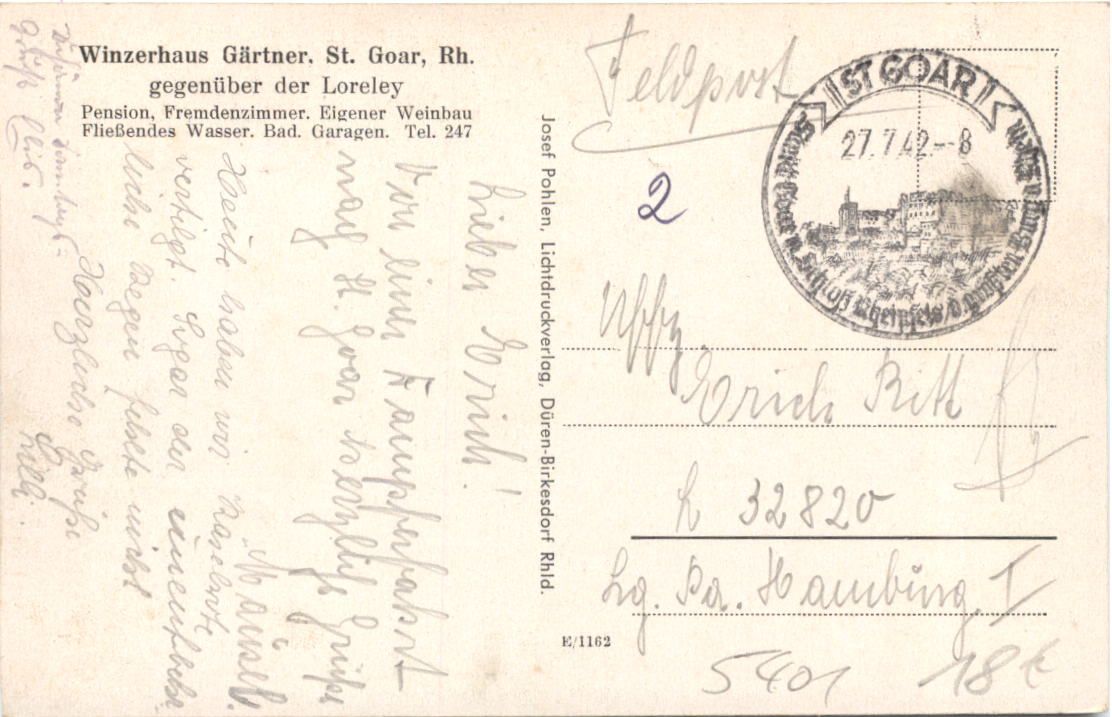 Winzerhaus Gärtner, St. Goar, Rh.
gegenüber der Loreley
Pension, Fremdenzimmer. Eigener Weinbau
Fließendes Wasser. Bad. Garagen. Tel. 247
Lieber Erich!
Von einer Dampferfahrt
nach St. Goar herzliche Grüße
"Mäusle".
Heute haben wir
vertilgt. Sogar der unentbehr
liche Regen fehlte nicht
Herzliche Grüße
Lilli.
Grüße
Josef Pohlen, Lichtdruckverlag, Düren-Birkesdorf Rhld.
E/1162
Feldpost
2
ST GOAR
27.7.42.-8
Schloß Rheinfels
Uffz
Erich Ritt
L 32820
Lg. Pa. Hamburg I
5401
18